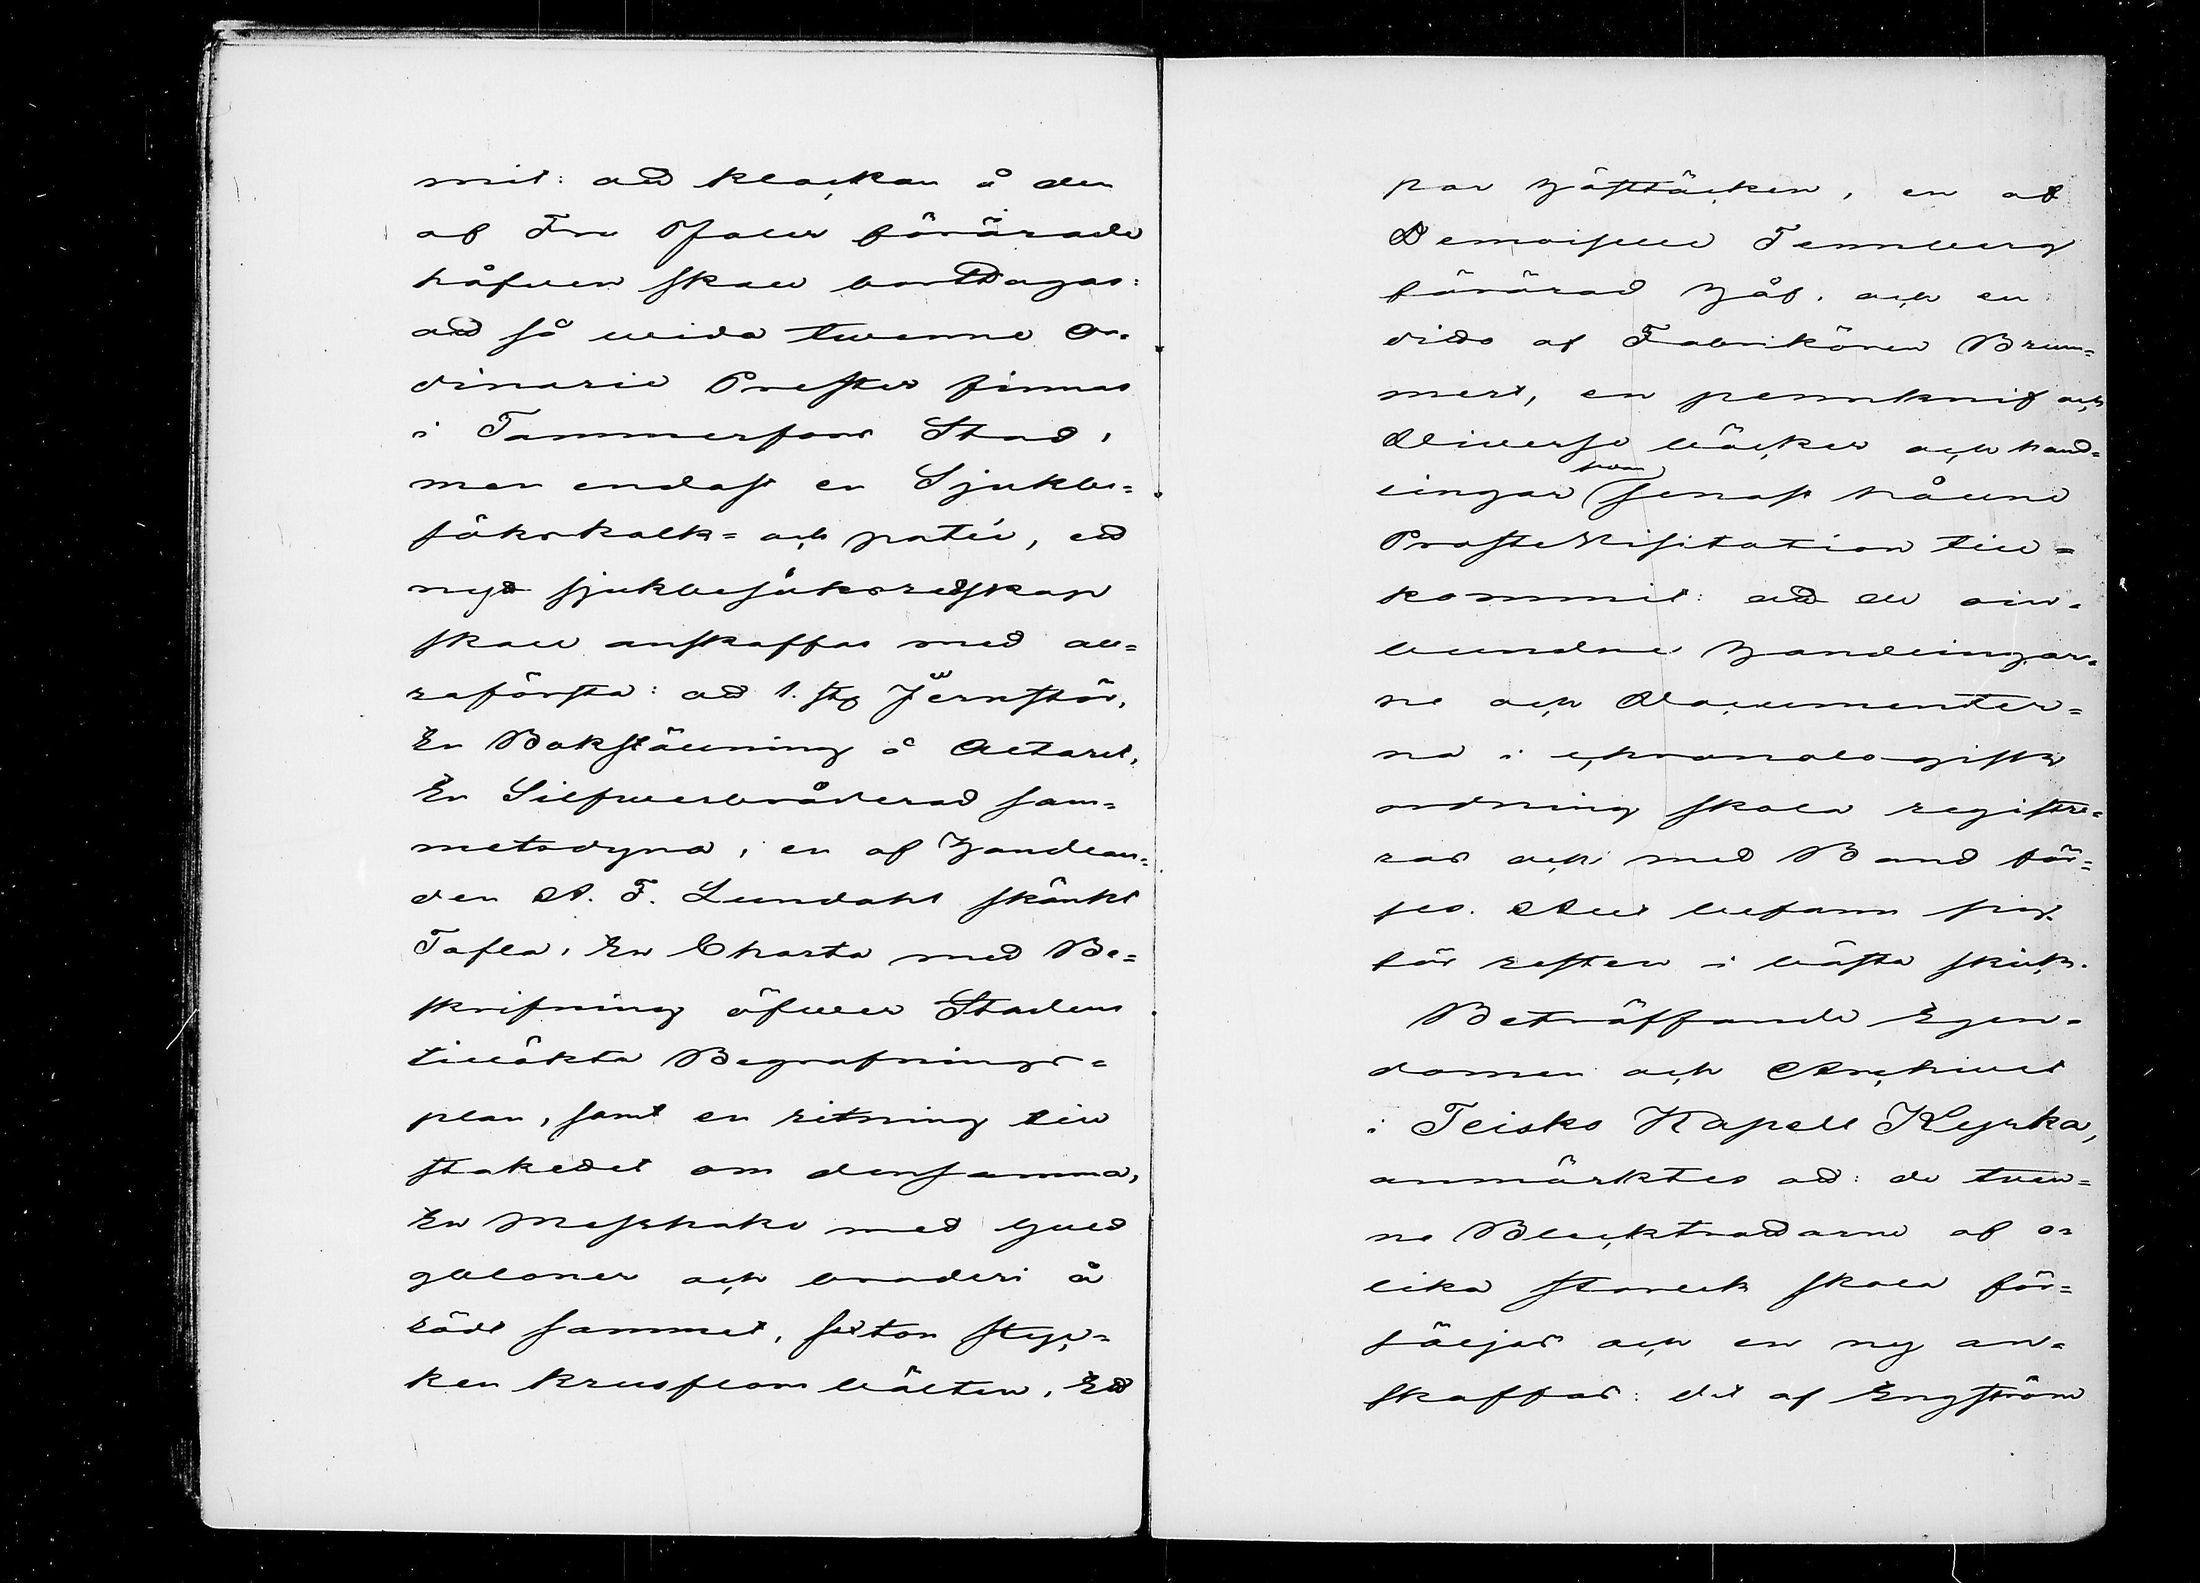 mit: att klockan å den
af Fru Ifaler förärade
håfven skall borttagas:
att så vida tvenne Or=
dinarie Prester finnas
i Tammerfors Stad,
men endast en Sjukbe=
sökskalk= och patén, ett
nytt sjukbesöksredskap
skall anskaffas med all=
raförsta: att 1. st Jernstör,
En Bokställning å Altaret,
En Silfverbråderad sam=
metsdyna, en af Handlan=
den A. F. Lundahl skänkt
Tafla, En Charta med Be=
skrifning öfver Stadens
tillökta Begrafnings=
plan, samt en ritning till
staketet om densamma,
En Messhake med Guld
galoner och broderi å
rödt sammet, sexton styc=
ken krusflors bälten, Ett
par Höftäcken, en af
Demoiselle Tennberg
förärad Håf. och en
dito af Fabrikören Brum=
mert, en pennknif och
diverse böcker och hand=
lingar som senast hållne
Prostevisitation till=
kommit: att de oin=
bundne Handlingar=
ne och Documenter=
na i chronologisk
ordning skola registre=
ras och med Band för=
ses. Allt befanns sig
för resten i bästa skick.
Beträffande Egen=
domen och Archivet
i Teisko Kapell Kyrka,
anmärktes att: de tven=
ne Blecktrattarne af o=
lika storlek skola för=
säljas och en ny an=
skaffas: det af Engström